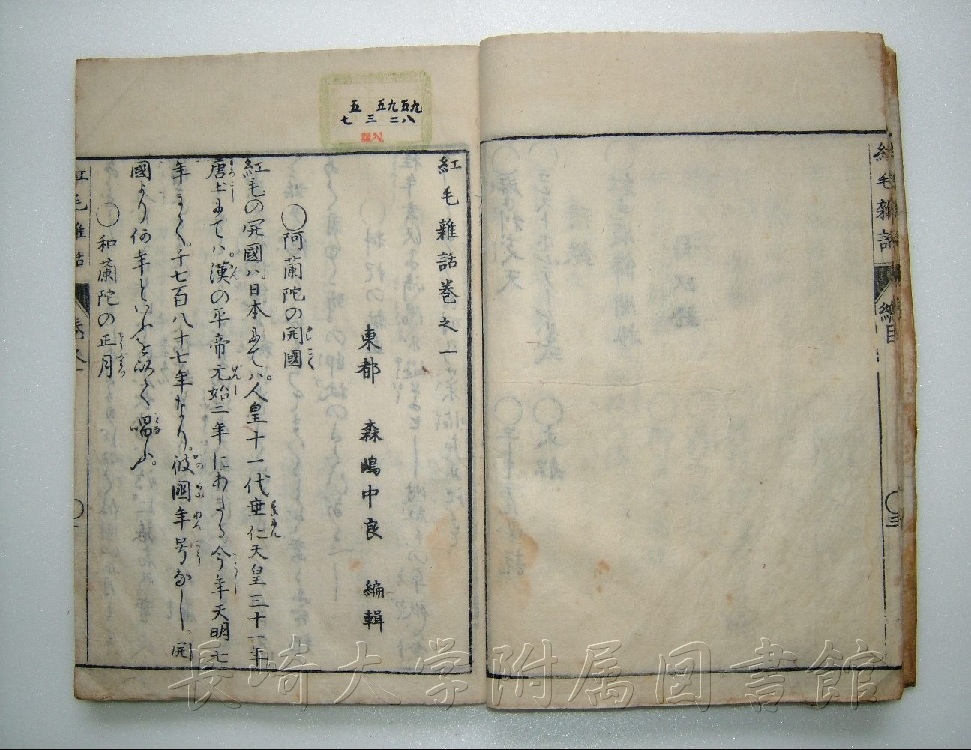 紅毛雑話 総目
三
五 九五九
七三二八
紅毛雜話巻之一
東都 森嶋中良 編輯
◯阿蘭陀の開國
紅毛の開國ハ、日本にてハ、人皇十一代垂仁天皇三十一年
唐土にてハ、漢の平帝元始二年にあたる今年天明七
年まで、千七百八十七年なり。彼國年号なし、開
國より何年といふを以て唱ふ。
◯和蘭陀の正月
紅毛雜話 巻之一
長崎大学附属図書館